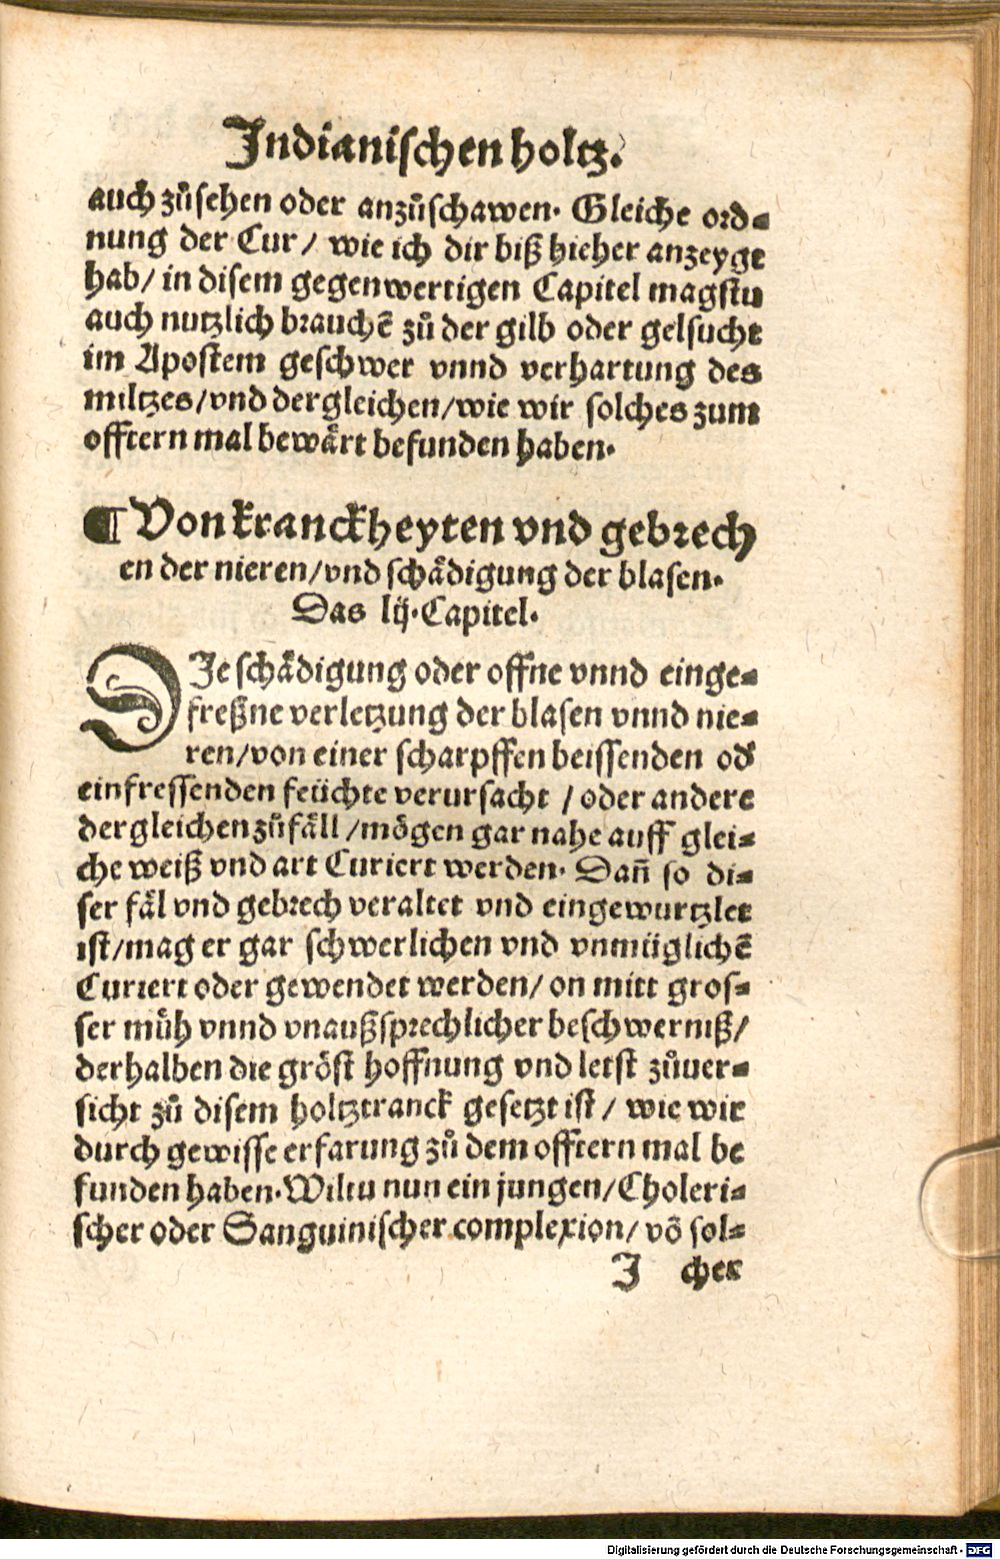 Indianischen holtz.
auch zůsehen oder anzůschawen. Gleiche ord-
nung der Cur / wie ich dir biß hieher anzeygt
hab / in disem gegenwertigen Capitel magstu
auch nutzlich brauchẽ zů der gilb oder gelsucht
im Apostem geschwer vnnd verhartung des
miltzes / vnd dergleichen / wie wir solches zum
offtern mal bewårt befunden haben.
¶ Von kranckheyten vnd gebrech
en der nieren / vnd schådigung der blasen.
Das lij. Capitel.
DIe schådigung oder offne vnnd einge-
freßne verletzung der blasen vnnd nie-
ren / von einer scharpffen beissenden od'
einfressenden feüchte verursacht / oder andere
dergleichen zůfåll / mögen gar nahe auff glei-
che weiß vnd art Curiert werden. Dañ so di-
ser fål vnd gebrech veraltet vnd eingewurtzlet
ist / mag er gar schwerlichen vnd vnmüglichẽ
Curiert oder gewendet werden / on mitt gros-
ser müh vnnd vnaußsprechlicher beschwerniß /
derhalben die gröst hoffnung vnd letst zůuer-
sicht zů disem holtztranck gesetzt ist / wie wir
durch gewisse erfarung zů dem offtern mal be
funden haben. Wiltu nun ein jungen / Choleri-
scher oder Sanguinischer complexion / võ sol-
I cher
Digitalisierung gefördert durch die Deutsche Forschungsgemeinschaft - DFG